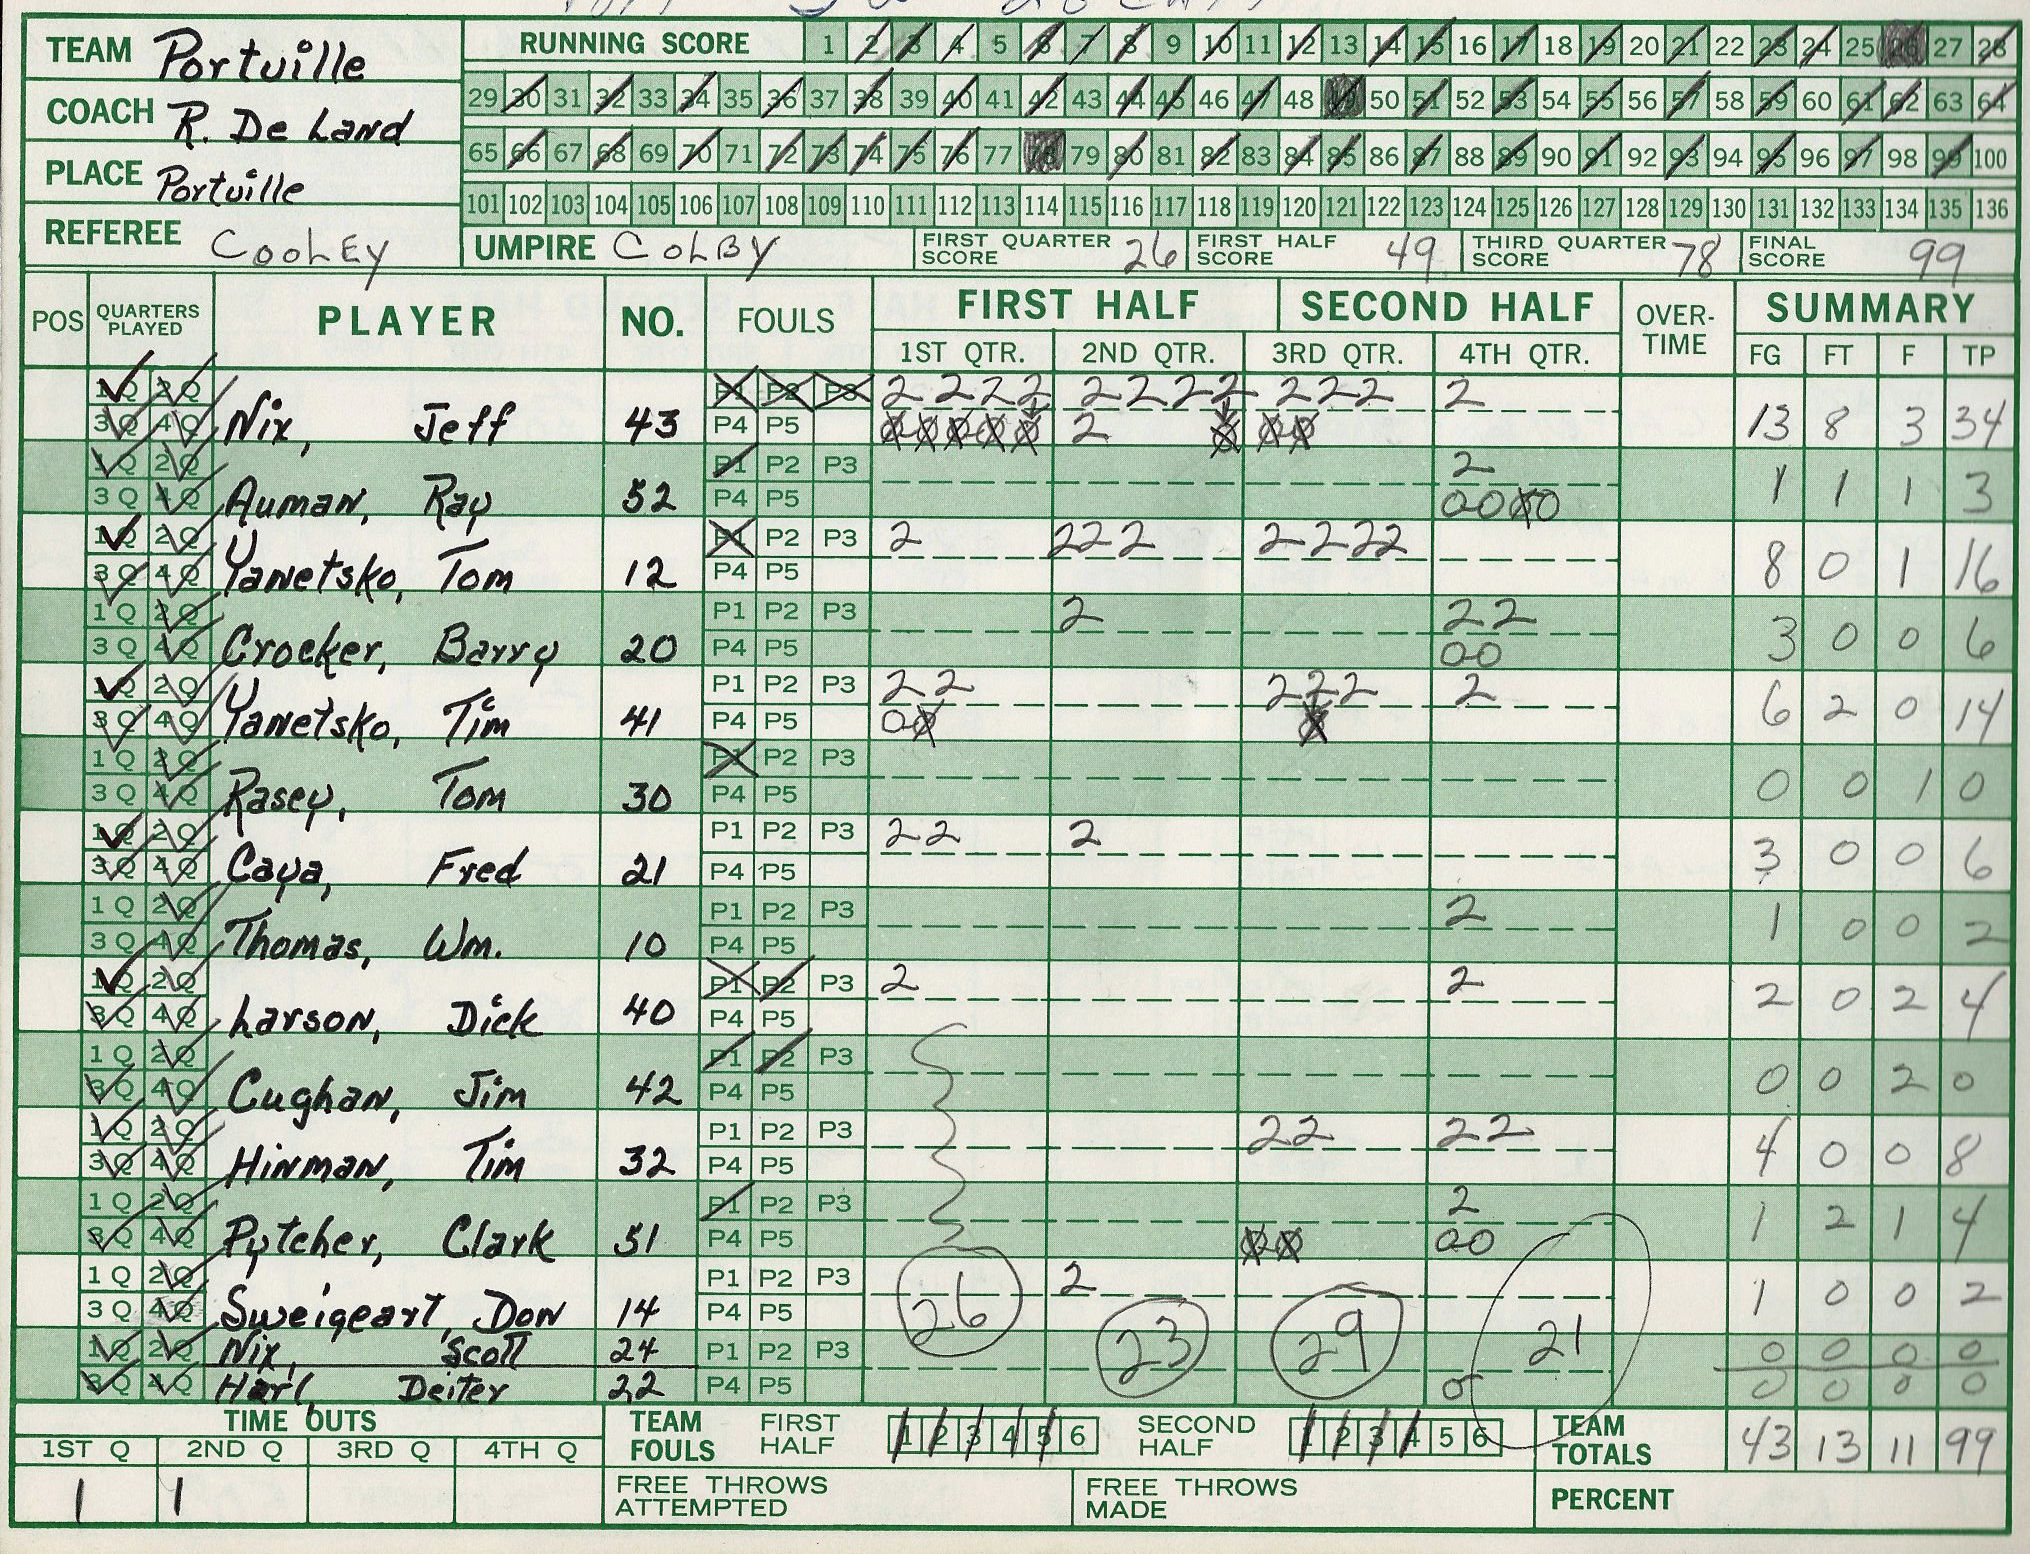 TEAM Portville
COACH R. De Land
PLACE Portville
REFEREE Cooley
RUNNING SCORE 1 2 3 4 5 6 7 8 9 10 11 12 13 14 15 16 17 18 19 20 21 22 23 24 25 26 27 28
29 30 31 32 33 34 35 36 37 38 39 40 41 42 43 44 45 46 47 48 49 50 51 52 53 54 55 56 57 58 59 60 61 62 63 64
65 66 67 68 69 70 71 72 73 74 75 76 77 78 79 80 81 82 83 84 85 86 87 88 89 90 91 92 93 94 95 96 97 98 99 100
101 102 103 104 105 106 107 108 109 110 111 112 113 114 115 116 117 118 119 120 121 122 123 124 125 126 127 128 129 130 131 132 133 134 135 136
UMPIRE COLBY FIRST QUARTER SCORE 26 FIRST HALF SCORE 49 THIRD QUARTER SCORE 78 FINAL SCORE 99
POS QUARTERS PLAYED PLAYER NO. FOULS FIRST HALF SECOND HALF OVER-TIME SUMMARY
1ST QTR. 2ND QTR. 3RD QTR. 4TH QTR. FG FT F TP
1Q 2Q P1 P2 P3 2 2 2 2 2 2 2 2 2 2 2 2
3Q 4Q Nix, Jeff 43 P4 P5 0 0 0 0 0 2 0 0 0 13 8 3 34
1Q 2Q P1 P2 P3 2
3Q 4Q Auman, Ray 52 P4 P5 0 0 0 0 1 1 1 3
1Q 2Q P1 P2 P3 2 2 2 2 2 2 2 2
3Q 4Q Yanetsko, Tom 12 P4 P5 8 0 1 16
1Q 2Q P1 P2 P3 2 2 2
3Q 4Q Crocker, Barry 20 P4 P5 0 0 3 0 0 6
1Q 2Q P1 P2 P3 2 2 2 2 2 2
3Q 4Q Yanetsko, Tim 41 P4 P5 0 0 0 6 2 0 14
1Q 2Q P1 P2 P3
3Q 4Q Rasey, Tom 30 P4 P5 0 0 1 0
1Q 2Q P1 P2 P3 2 2 2
3Q 4Q Caya, Fred 21 P4 P5 3 0 0 6
1Q 2Q P1 P2 P3 2
3Q 4Q Thomas, Wm. 10 P4 P5 1 0 0 2
1Q 2Q P1 P2 P3 2 2
3Q 4Q Larson, Dick 40 P4 P5 2 0 2 4
1Q 2Q P1 P2 P3
3Q 4Q Cughan, Jim 42 P4 P5 0 0 2 0
1Q 2Q P1 P2 P3 2 2 2 2
3Q 4Q Hinman, Tim 32 P4 P5 4 0 0 8
1Q 2Q P1 P2 P3 2
3Q 4Q Pytcher, Clark 51 P4 P5 0 0 0 0 1 2 1 4
1Q 2Q P1 P2 P3 2
3Q 4Q Sweigeart, Don 14 P4 P5 26 23 29 21 1 0 0 2
1Q 2Q Nix, Scott 24 P1 P2 P3 0 0 0 0
3Q 4Q Harl, Deiter 22 P4 P5 0 0 0 0 0
TIME OUTS TEAM FOULS FIRST HALF 1 2 3 4 5 6 SECOND HALF 1 2 3 4 5 6 TEAM TOTALS 43 13 11 99
1ST Q 2ND Q 3RD Q 4TH Q
1 1 FREE THROWS ATTEMPTED FREE THROWS MADE PERCENT